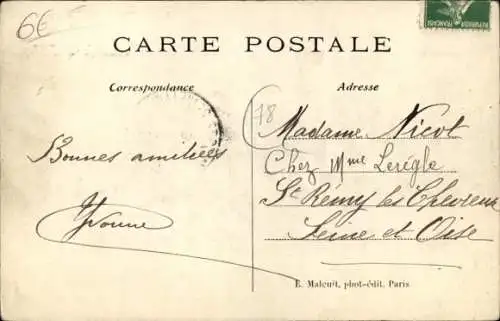 6€
CARTE POSTALE
Correspondance
Adresse
78
Madame Nicot
Chez Mme Lerègle
St Rémy les Chevreuse
Seine et Oise
Bonnes amitiées
Yvonne
E. Malcuit, phot-édit. Paris